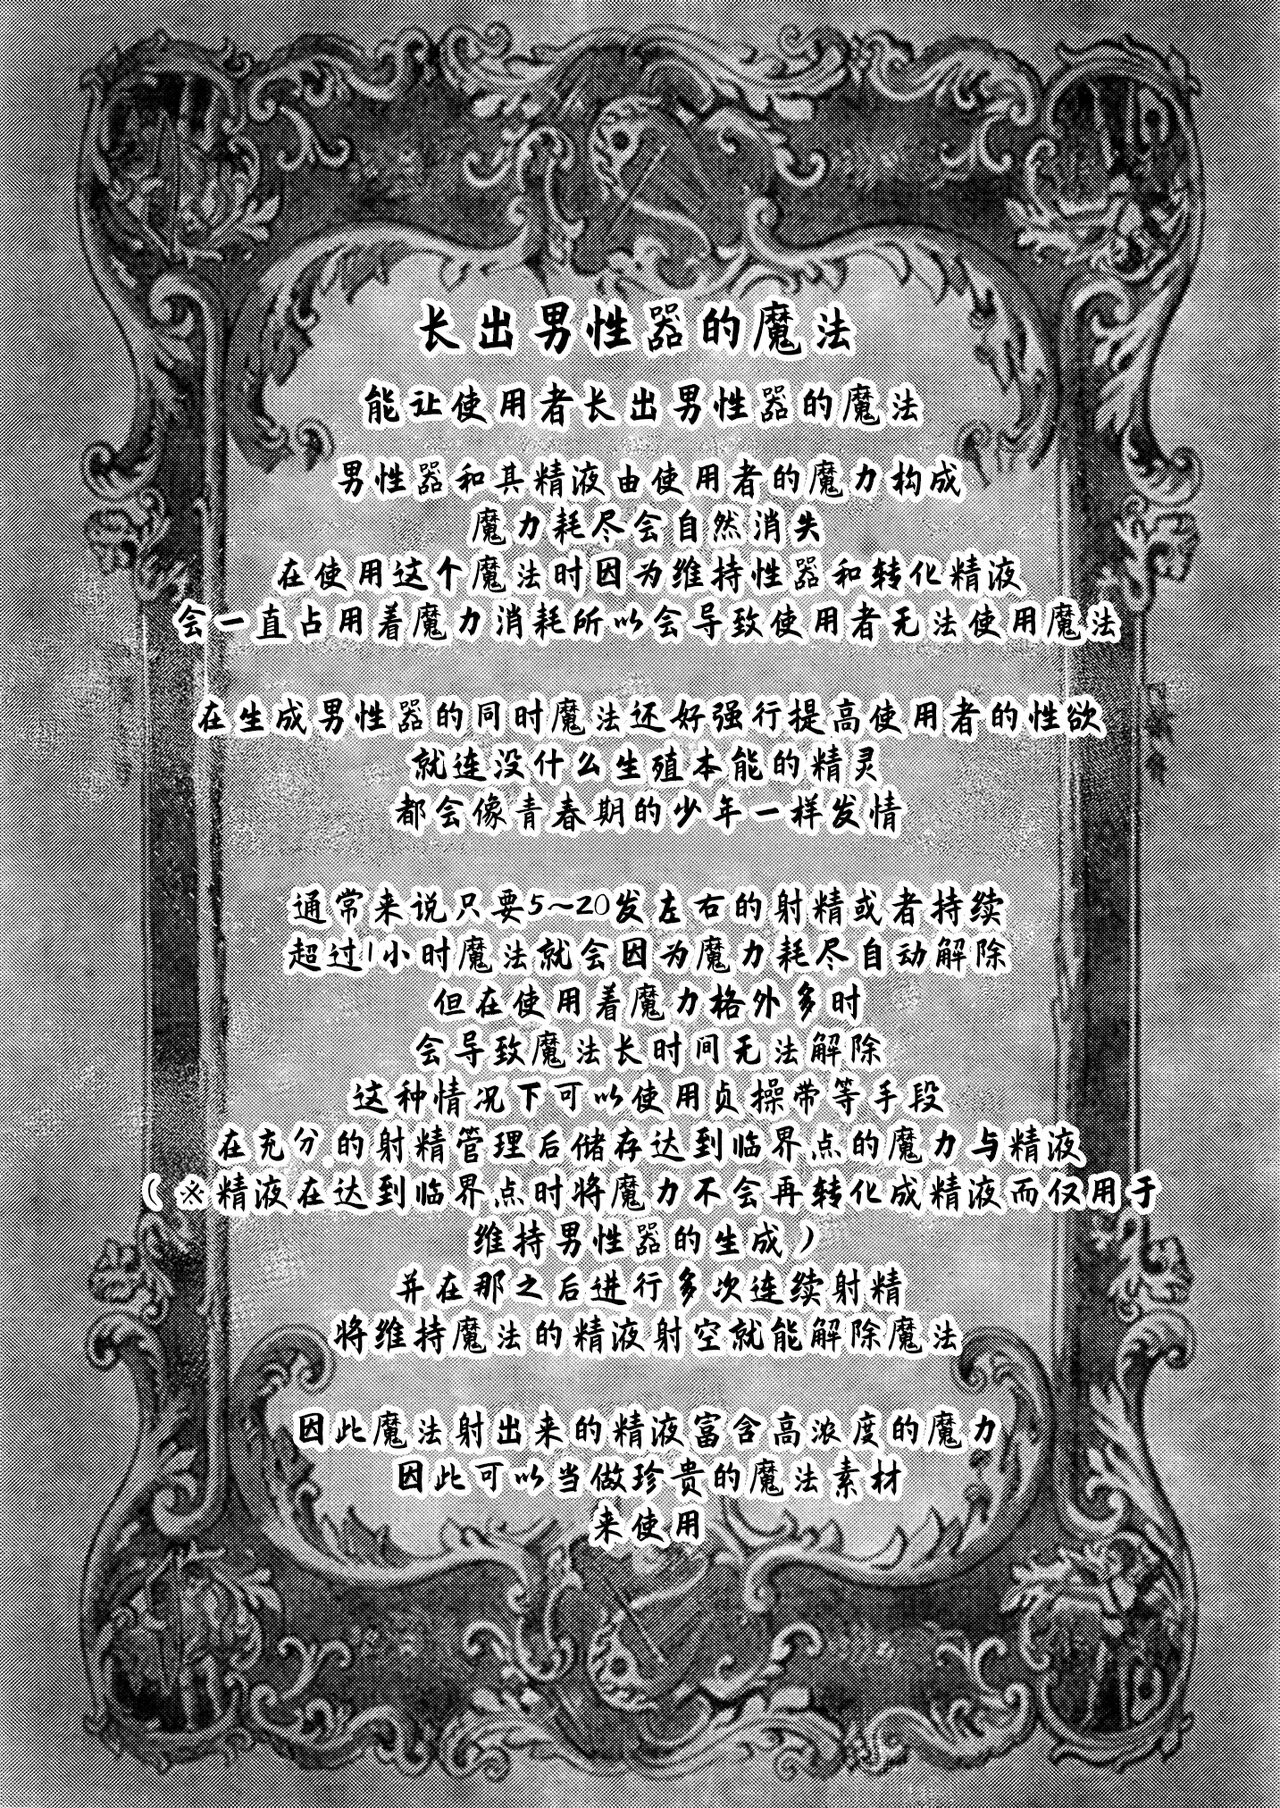 长出男性器的魔法
能让使用者长出男性器的魔法
男性器和其精液由使用者的魔力构成
魔力耗尽会自然消失
在使用这个魔法时因为维持性器和转化精液
会一直占用着魔力消耗所以会导致使用者无法使用魔法
在生成男性器的同时魔法还好强行提高使用者的性欲
就连没什么生殖本能的精灵
都会像青春期的少年一样发情
通常来说只要5~20发左右的射精或者持续
超过1小时魔法就会因为魔力耗尽自动解除
但在使用着魔力格外多时
会导致魔法长时间无法解除
这种情况下可以使用贞操带等手段
在充分的射精管理后储存达到临界点的魔力与精液
(※精液在达到临界点时将魔力不会再转化成精液而仅用于
维持男性器的生成)
并在那之后进行多次连续射精
将维持魔法的精液射空就能解除魔法
因此魔法射出来的精液富含高浓度的魔力
因此可以当做珍贵的魔法素材
来使用